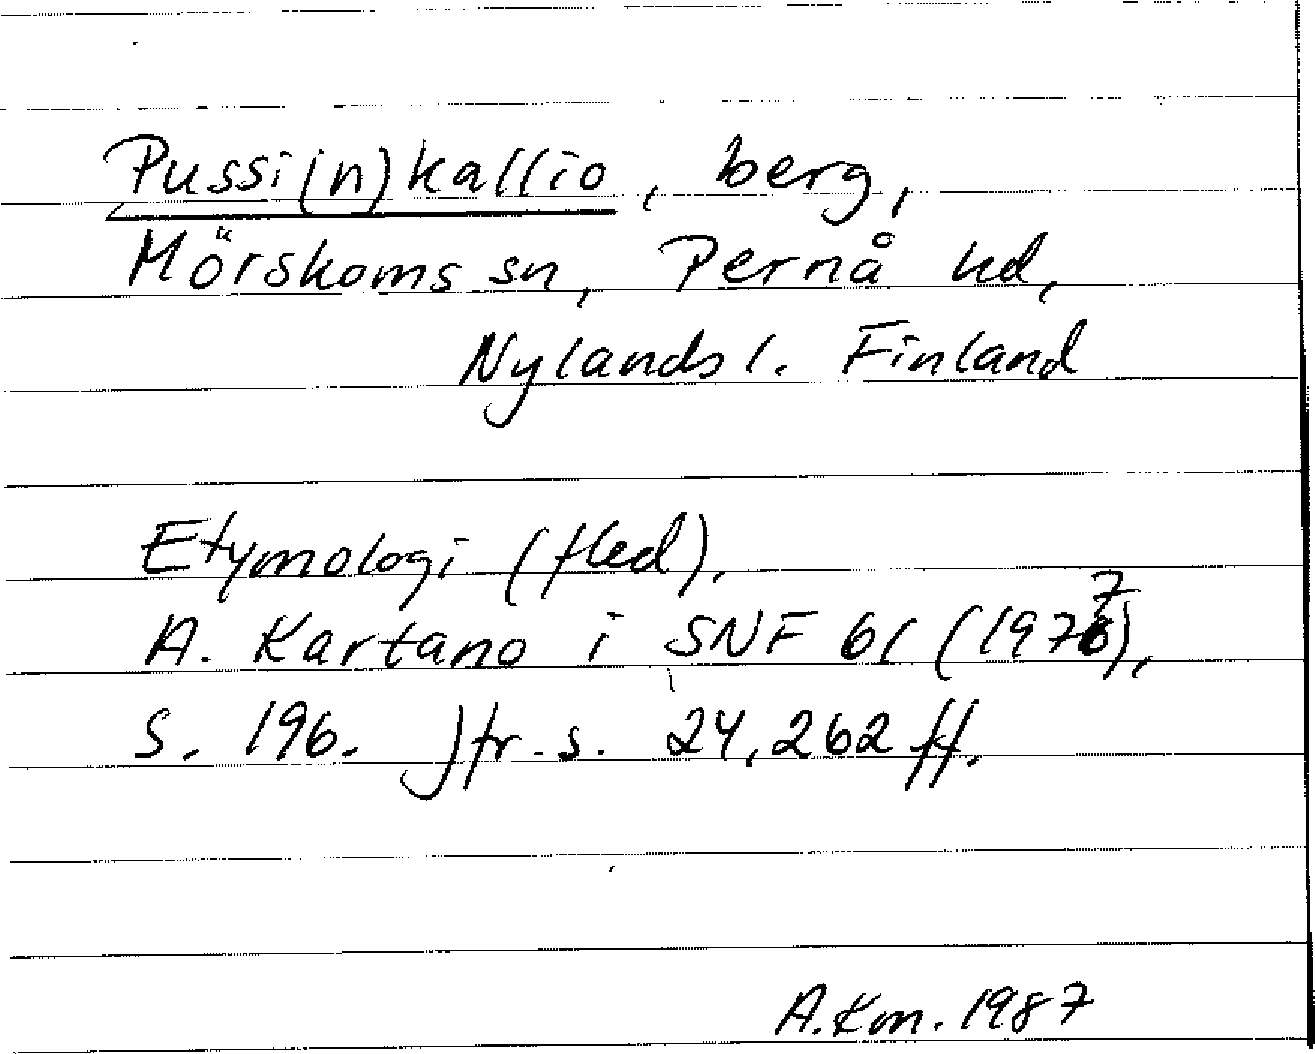 Pussi(n)kallio, berg,
Mörskoms sn, Pernå hd,
Nylands l. Finland
Etymologi (fled).
A. Kartano i SNF 61 (1977),
s. 196. Jfr s. 24, 262 ff.
A.Km. 1987